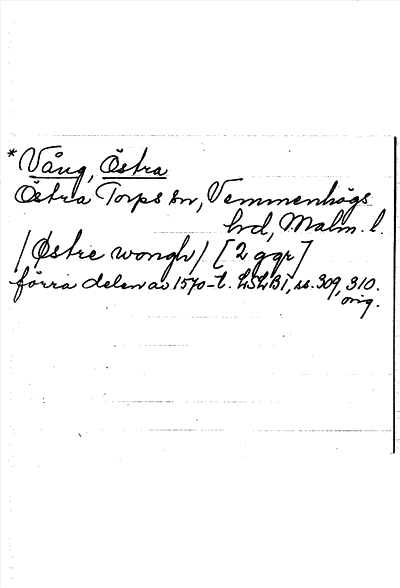 * Vång, Östra
Östra Torps sn, Vemmenhögs
hd, Malm. l.
/Østre wongh/ [2 ggr]
förra delen av 1570-t. LSLBI, ss. 309, 310.
orig.